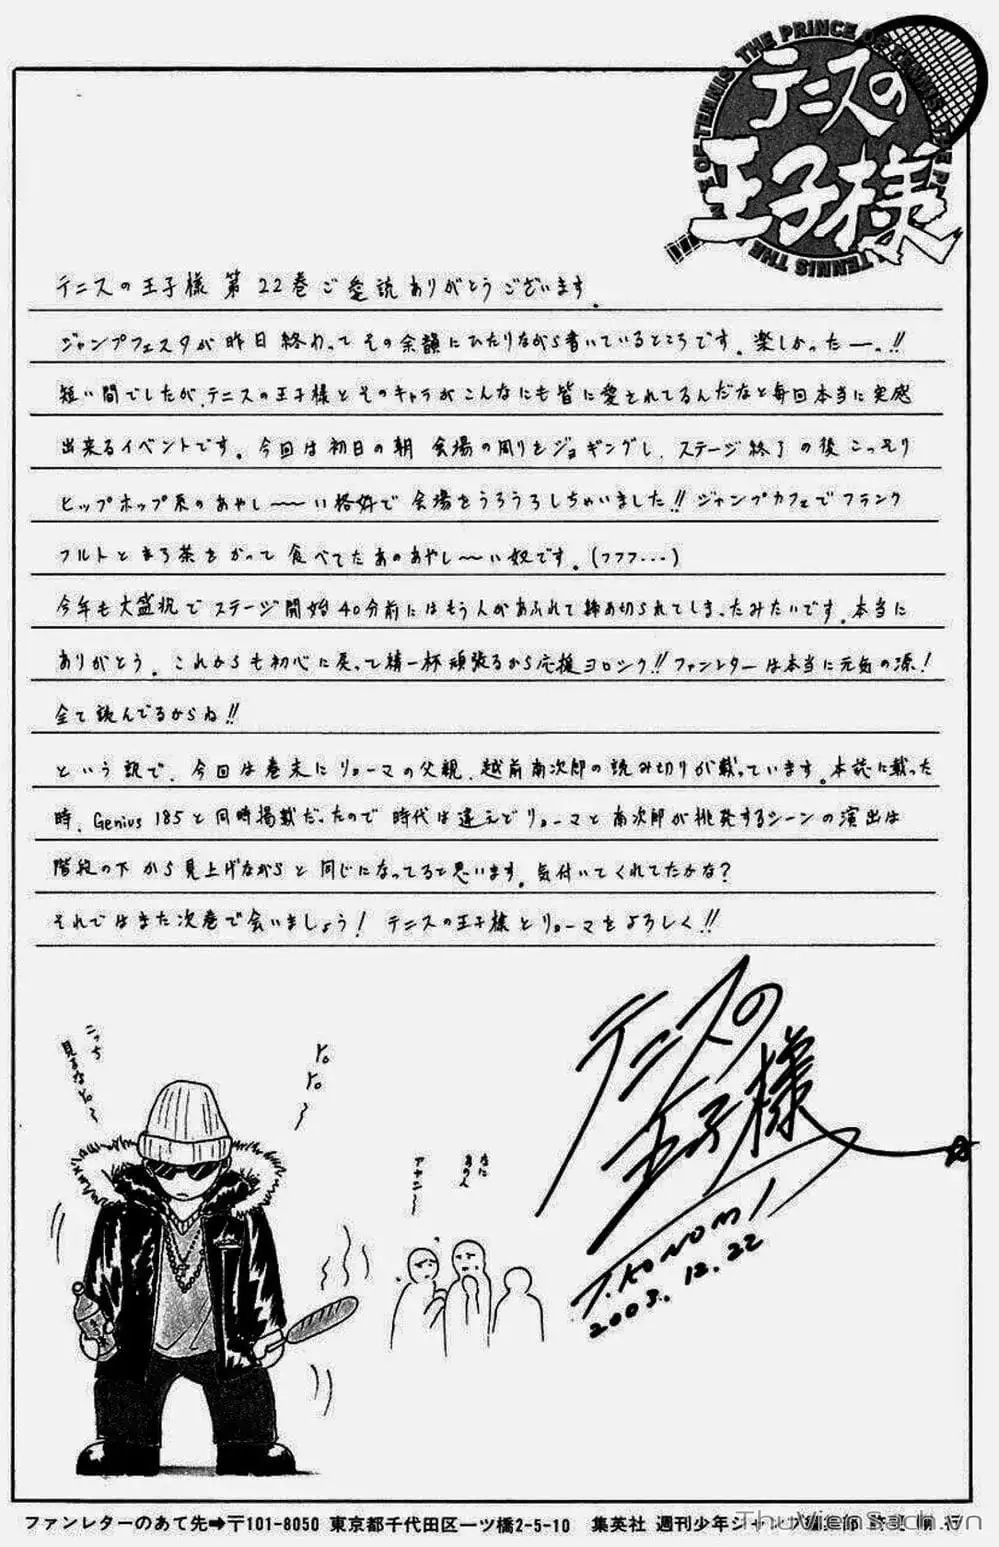 THE PRINCE OF TENNIS THE PRINCE OF TENNIS
テニスの
王子様
テニスの王子様 第22巻ご愛読ありがとうございます。
ジャンプフェスタが昨日終わってその余韻にひたりながら書いているところです。楽しかったーっ!!
短い間でしたが、テニスの王子様とそのキャラがこんなにも皆に愛されてるんだなと毎回本当に実感
出来るイベントです。今回は初日の朝 会場の周りをジョギングし、ステージ終了の後こっそり
ヒップホップ系のあやし〜〜い格好で会場をうろうろしちゃいました!!ジャンプカフェでフランク
フルトとまろ茶をかって食べてたあのあやし〜〜い奴です。(フフフ...)
今年も大盛況でステージ開始40分前にはもう人があふれて締め切られてしまったみたいです。本当に
ありがとう。これからも初心に戻って精一杯頑張るから応援ヨロシク!!ファンレターは本当に元気の源!
全て読んでるからね!!
という訳で、今回は巻末にリョーマの父親、越前南次郎の読み切りが載っています。本誌に載った
時、Genius 185と同時掲載だったので時代は違えどリョーマと南次郎が挑発するシーンの演出は
階段の下から見上げながらと同じになってると思います。気付いてくれてたかな?
それではまた次巻で会いましょう! テニスの王子様とリョーマをよろしく!!
こっち
見るなYo〜
Yo
Yo〜
なに
あの人
アヤシ〜
テニスの
王子様
T.KONOMI
2003.12.22
ファンレターのあて先➡〒101-8050 東京都千代田区一ツ橋2-5-10 集英社 週刊少年ジャンプ
ThuVienSach.vn